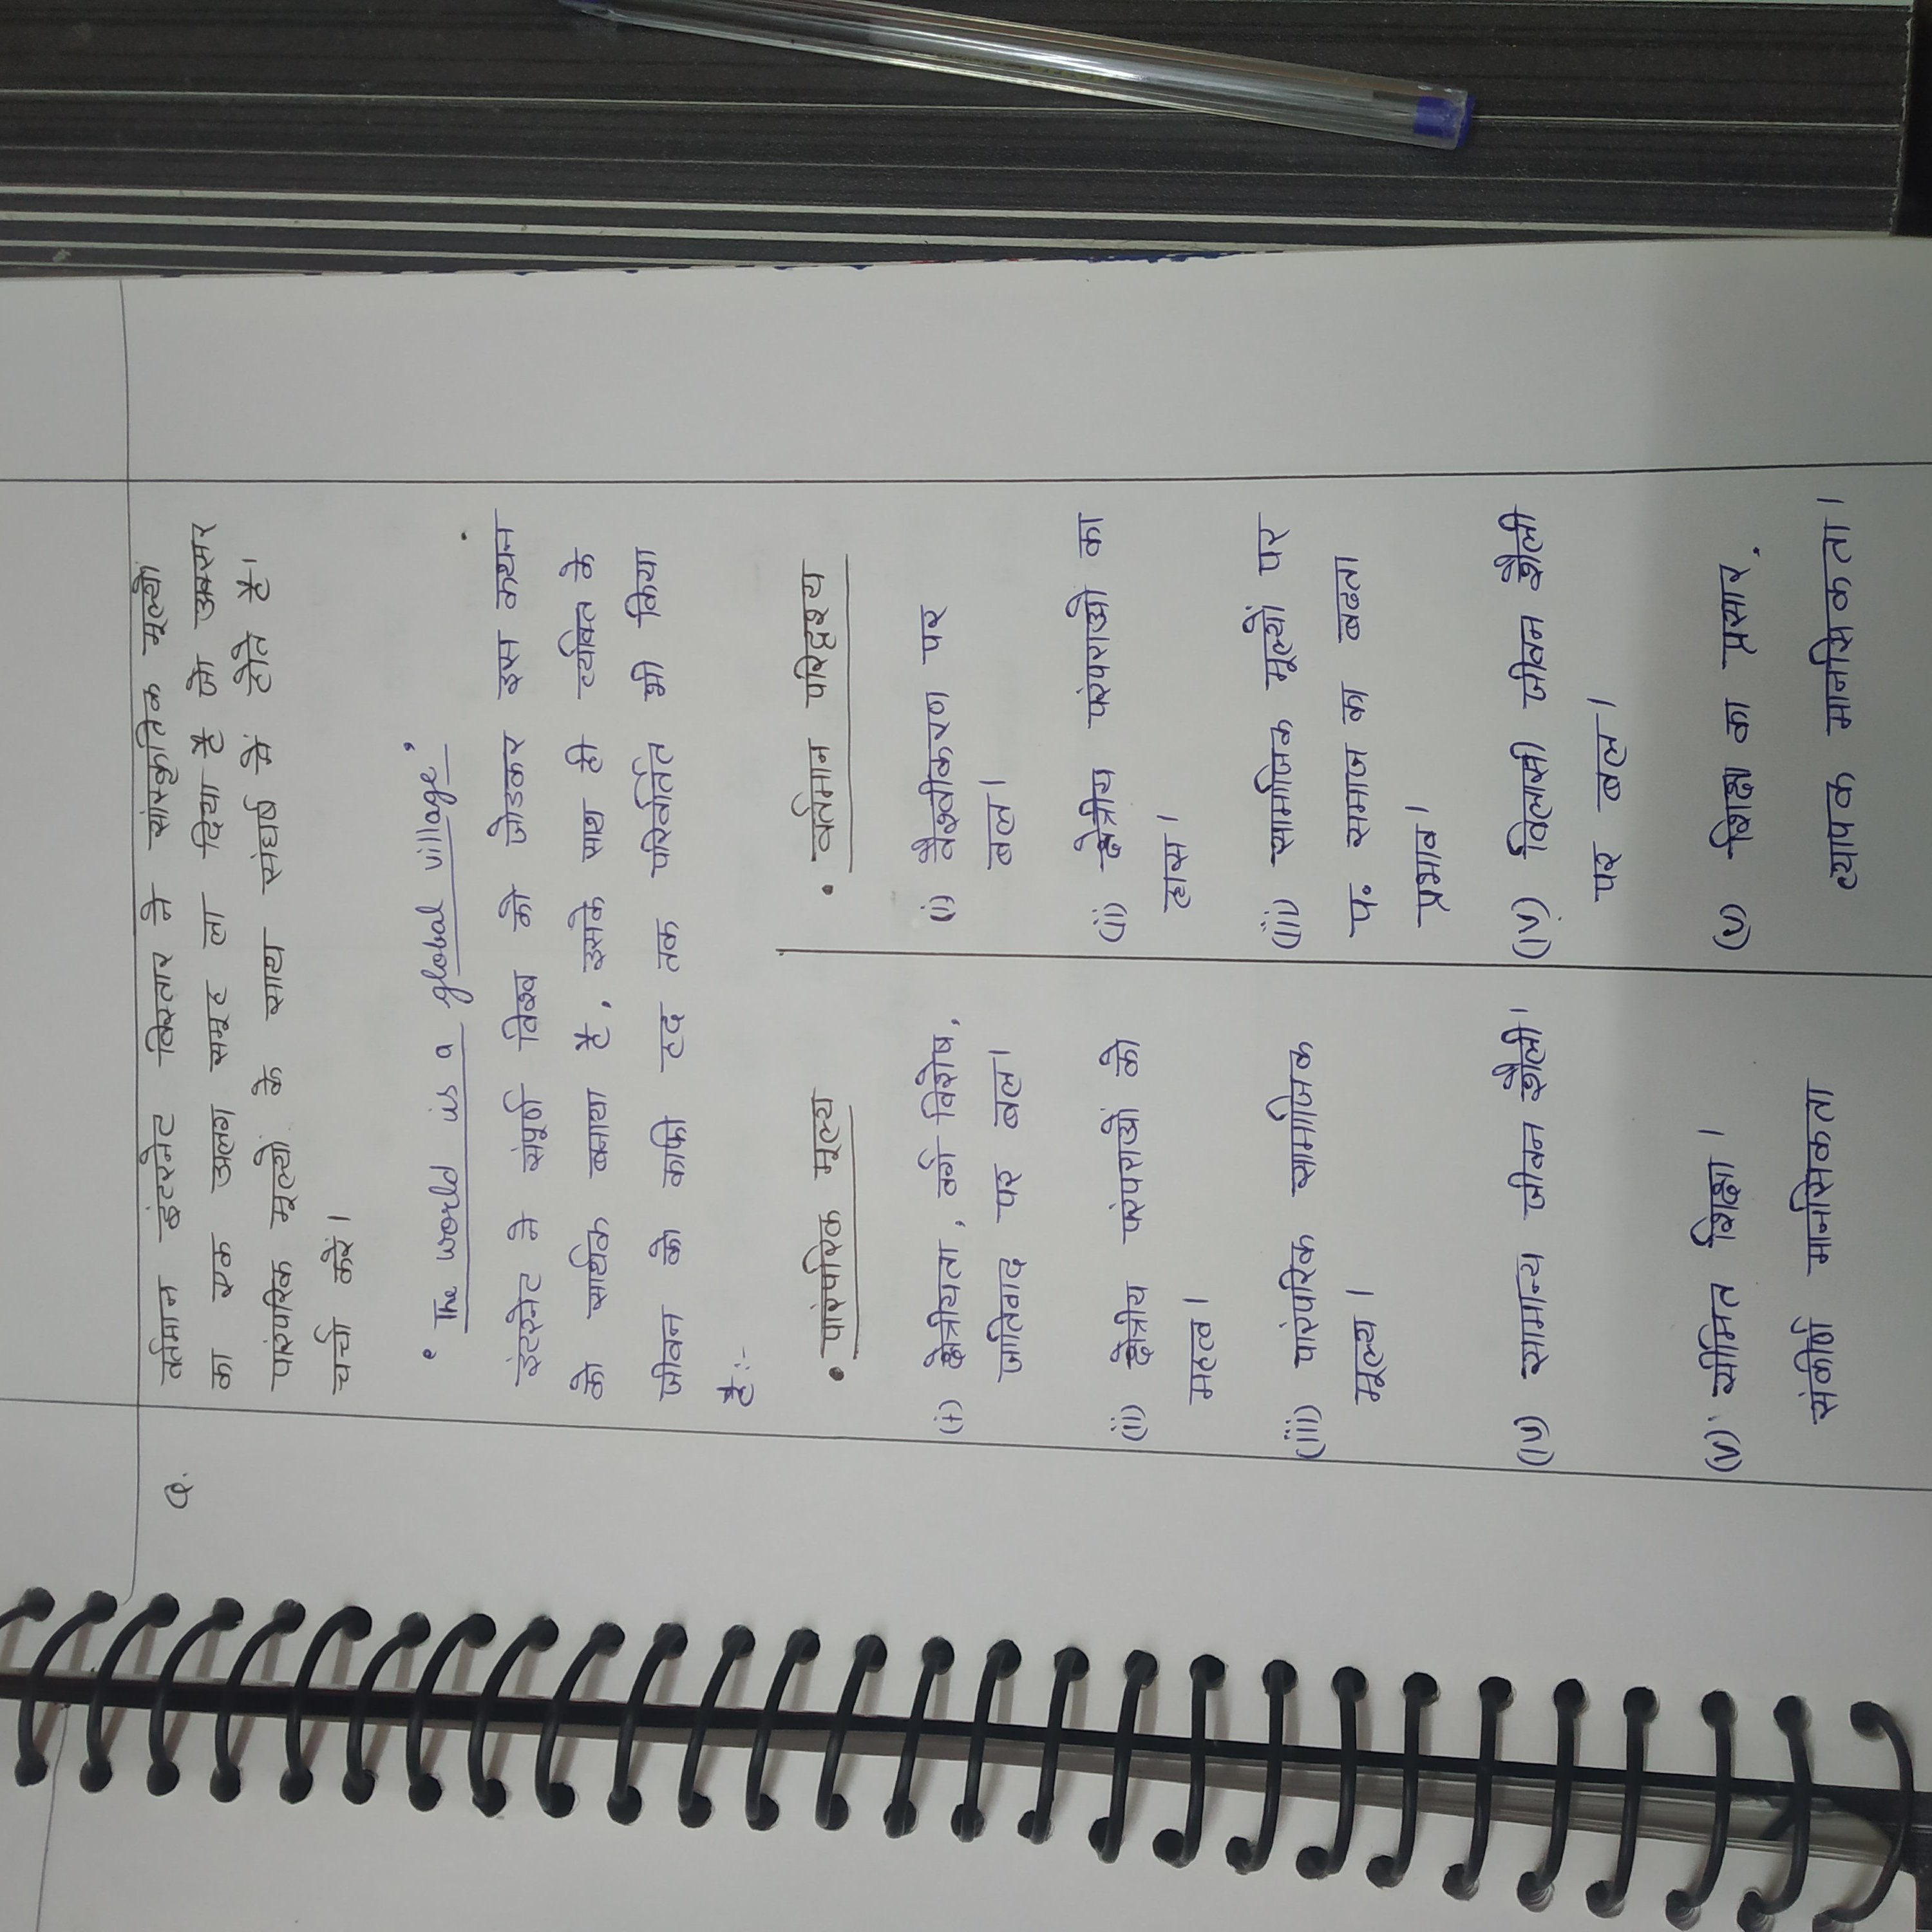 Q. वर्तमान इंटरनेट विस्तार ने सांस्कृतिक मूल्यों
का एक अलग समूह ला दिया है जो अक्सर
पारंपरिक मूल्यों के साथ संघर्ष में होते है।
चर्चा करें।
" The world is a global village"
इंटरनेट ने संपूर्ण विश्व को जोडकर इस कथन
को सार्थक बनाया है, इसके साथ ही व्यक्ति के
जीवन को काफी हद तक परिवर्तित भी किया
है:-
• पारंपरिक मूल्य
(i) क्षेत्रीयता, वर्ग विशेष,
जातिवाद पर बल।
(ii) क्षेत्रीय परंपराओं को
महत्व।
(iii) पारंपरिक सामाजिक
मूल्य।
(iv) सामान्य जीवन शैली।
(v) सीमित शिक्षा।
संकीर्ण मानसिकता
• वर्तमान परिदृश्य
(i) वैश्वीकरण पर
बल।
(ii) क्षेत्रीय परंपराओ का
हास।
(iii) सामाजिक मूल्यों पर
प. समाज का बढता
प्रभाव।
(iv) विलासी जीवन शैली
पर बल।
(v) शिक्षा का प्रसार.
व्यापक मानसिकता।